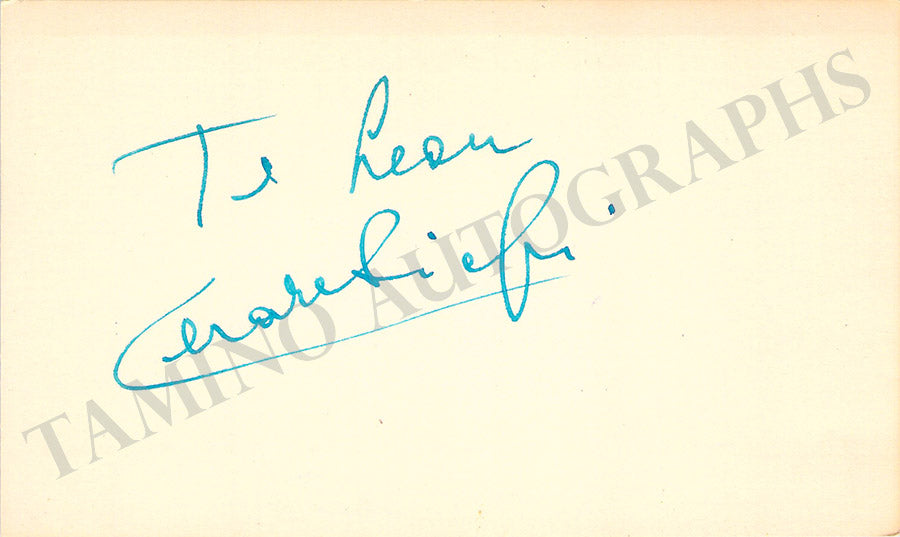 To Leon
Cesare Siepi
TAMINO AUTOGRAPHS